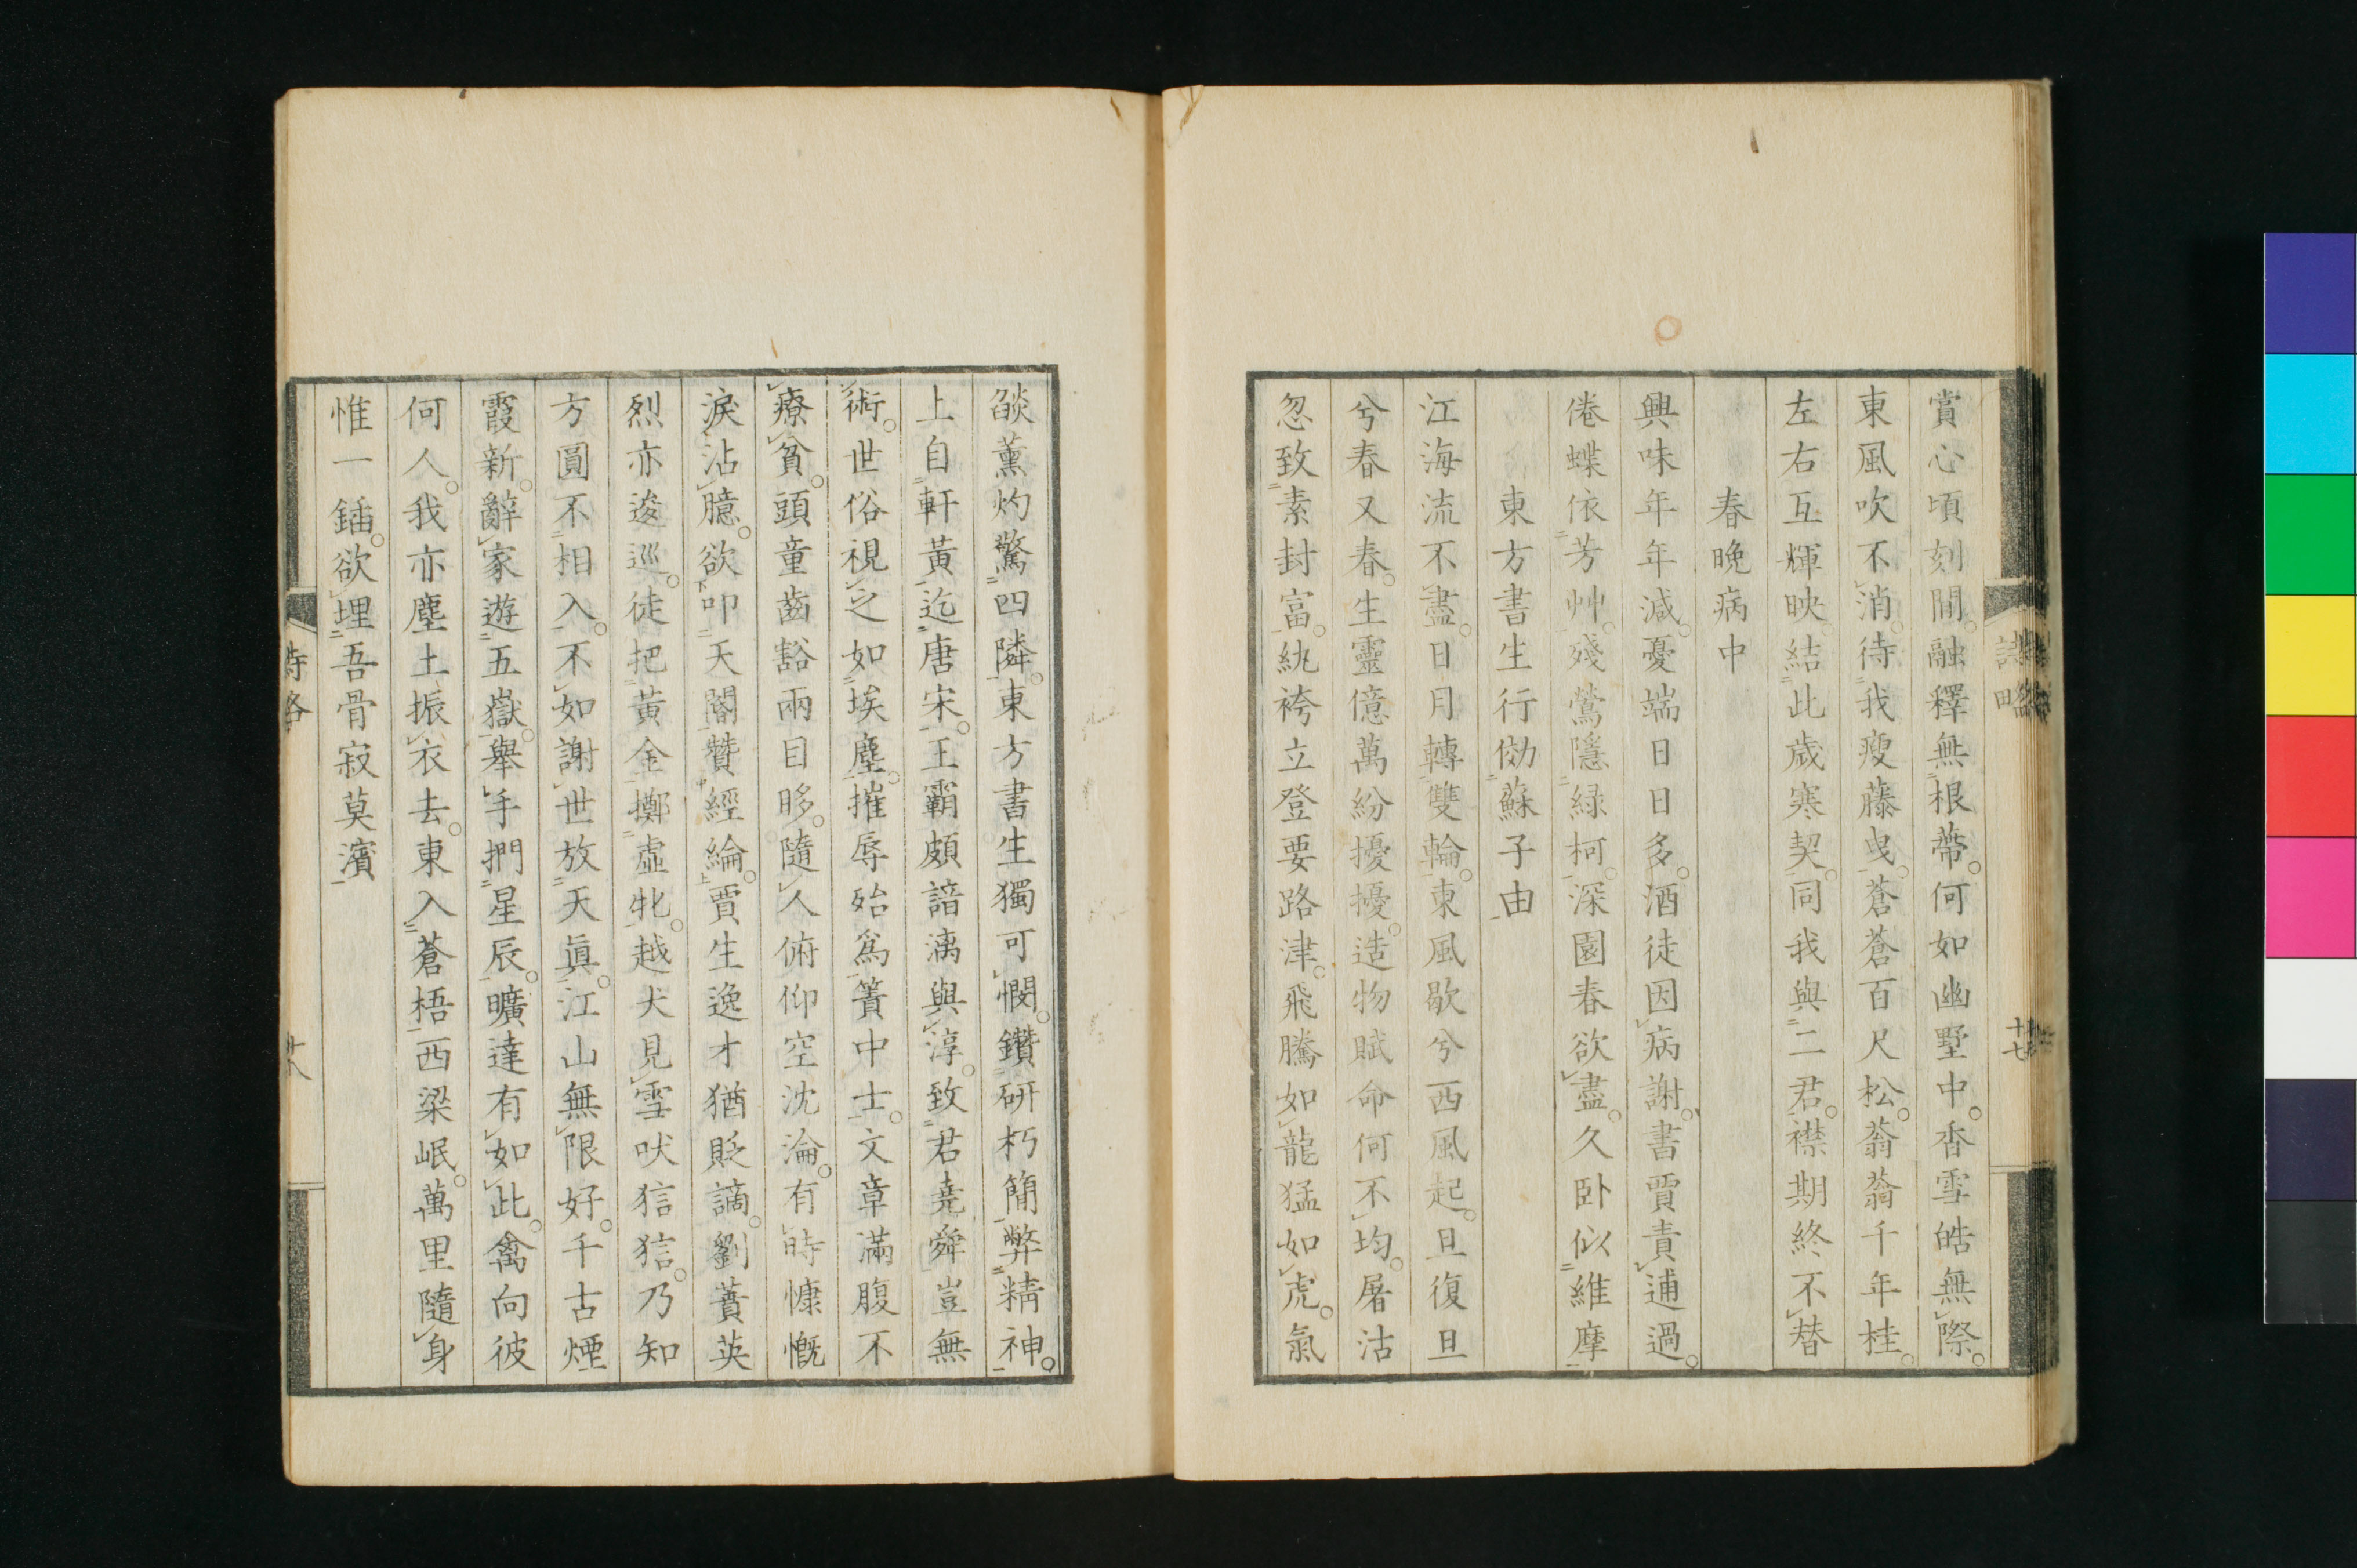 賞心頃刻間。融釋無根蔕。何如幽墅中。香雪皓無際。
東風吹不消。待我瘦藤曳。蒼蒼百尺松。蓊蓊千年桂。
左右互輝映。結此歲寒契。同我與二君。襟期終不替
春晚病中
興味年年減。憂端日日多。酒徒因病謝。書賈責逋過。
倦蝶依芳艸。殘鶯隱緑柯。深園春欲盡。久臥似維摩
東方書生行傚蘇子由
江海流不盡。日月轉雙輪。東風歇兮西風起。旦復旦
兮春又春。生靈億萬紛擾擾。造物賦命何不均。屠沽
忽致素封富。紈袴立登要路津。飛騰如龍猛如虎。氣
詩略
十七
燄薰灼驚四隣。東方書生獨可憫。鑽研朽簡弊精神。
上自軒黃迄唐宋。王霸頗諳漓與淳。致君堯舜豈無
術。世俗視之如埃塵。摧辱殆爲簀中士。文章滿腹不
療貧。頭童齒豁兩目眵。隨人俯仰空沈淪。有時慷慨
淚沾臆。欲叩天閽贊經綸。賈生逸才猶貶謫。劉蕡英
烈亦逡巡。徒把黃金擲虛牝。越犬見雪吠狺狺。乃知
方圓不相入。不如謝世放天眞。江山無限好。千古煙
霞新。辭家遊五嶽。舉手捫星辰。曠達有如此。禽向彼
何人。我亦塵土振衣去。東入蒼梧西梁岷。萬里隨身
惟一鍤。欲埋吾骨寂莫濱